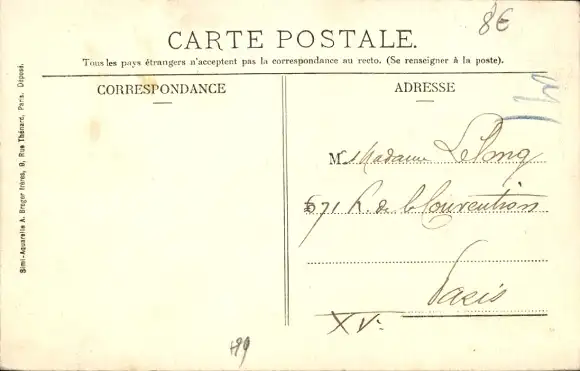 8€
CARTE POSTALE.
Tous les pays étrangers n'acceptent pas la correspondance au recto. (Se renseigner à la poste).
CORRESPONDANCE
ADRESSE
M Madame Lelong
71 R. de la Convention
Paris
XVe
Simi-Aquarelle A. Breger frères, 9, Rue Thénard, Paris. Déposé.